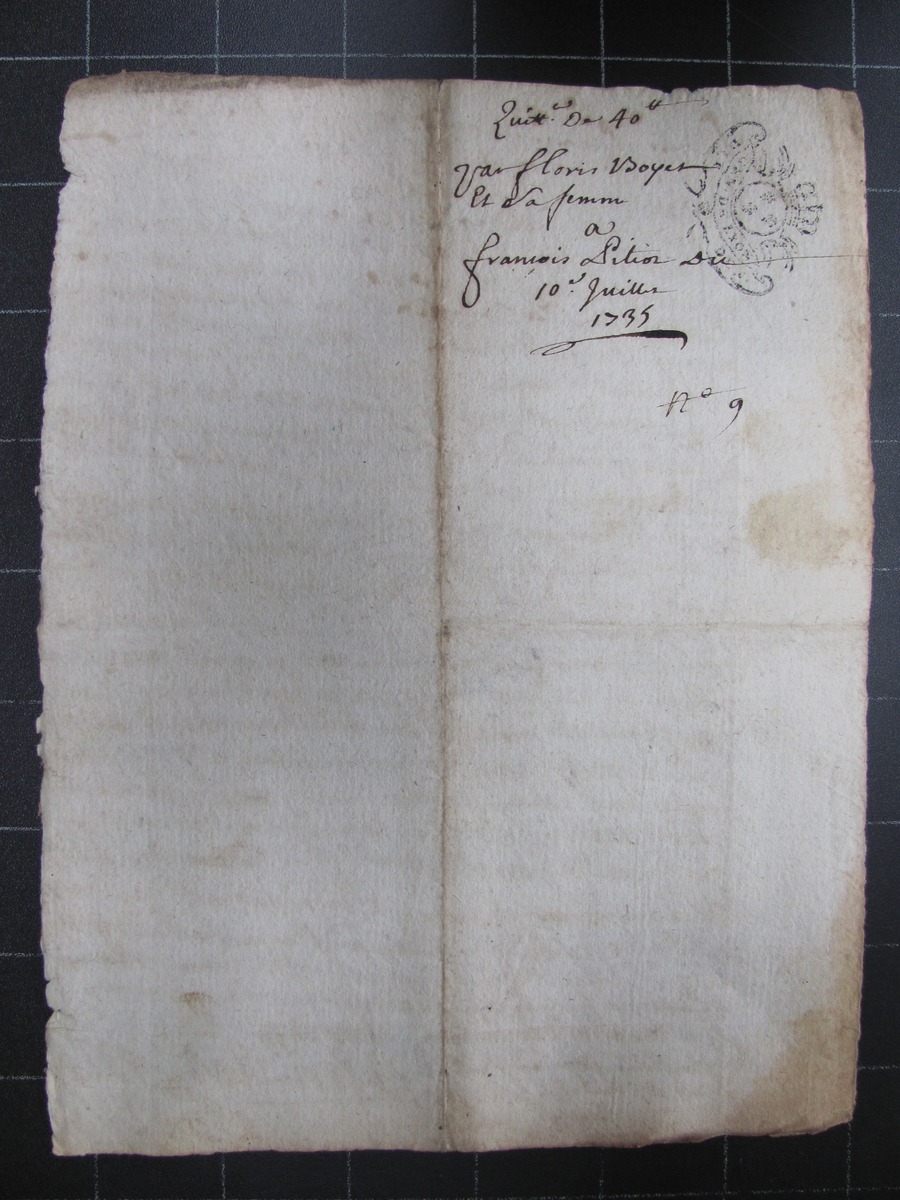 Quitt.ce De 40tt
par floris Boyer
Et Sa femme
a
françois Pitiot Du
10e Juillet
1735
No 9